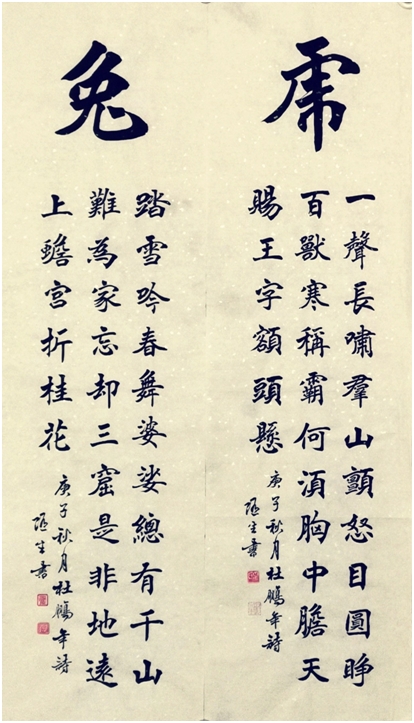 虎
一聲長嘯羣山顫怒目圓睜
百獸寒稱霸何湏胸中膽天
賜王字額頭懸
庚子秋月杜鵬年詩
生書
兔
踏雪吟春舞婆娑總有千山
難為家忘却三窟是非地遠
上蟾宮折桂花
庚子秋月杜鵬年詩
生書